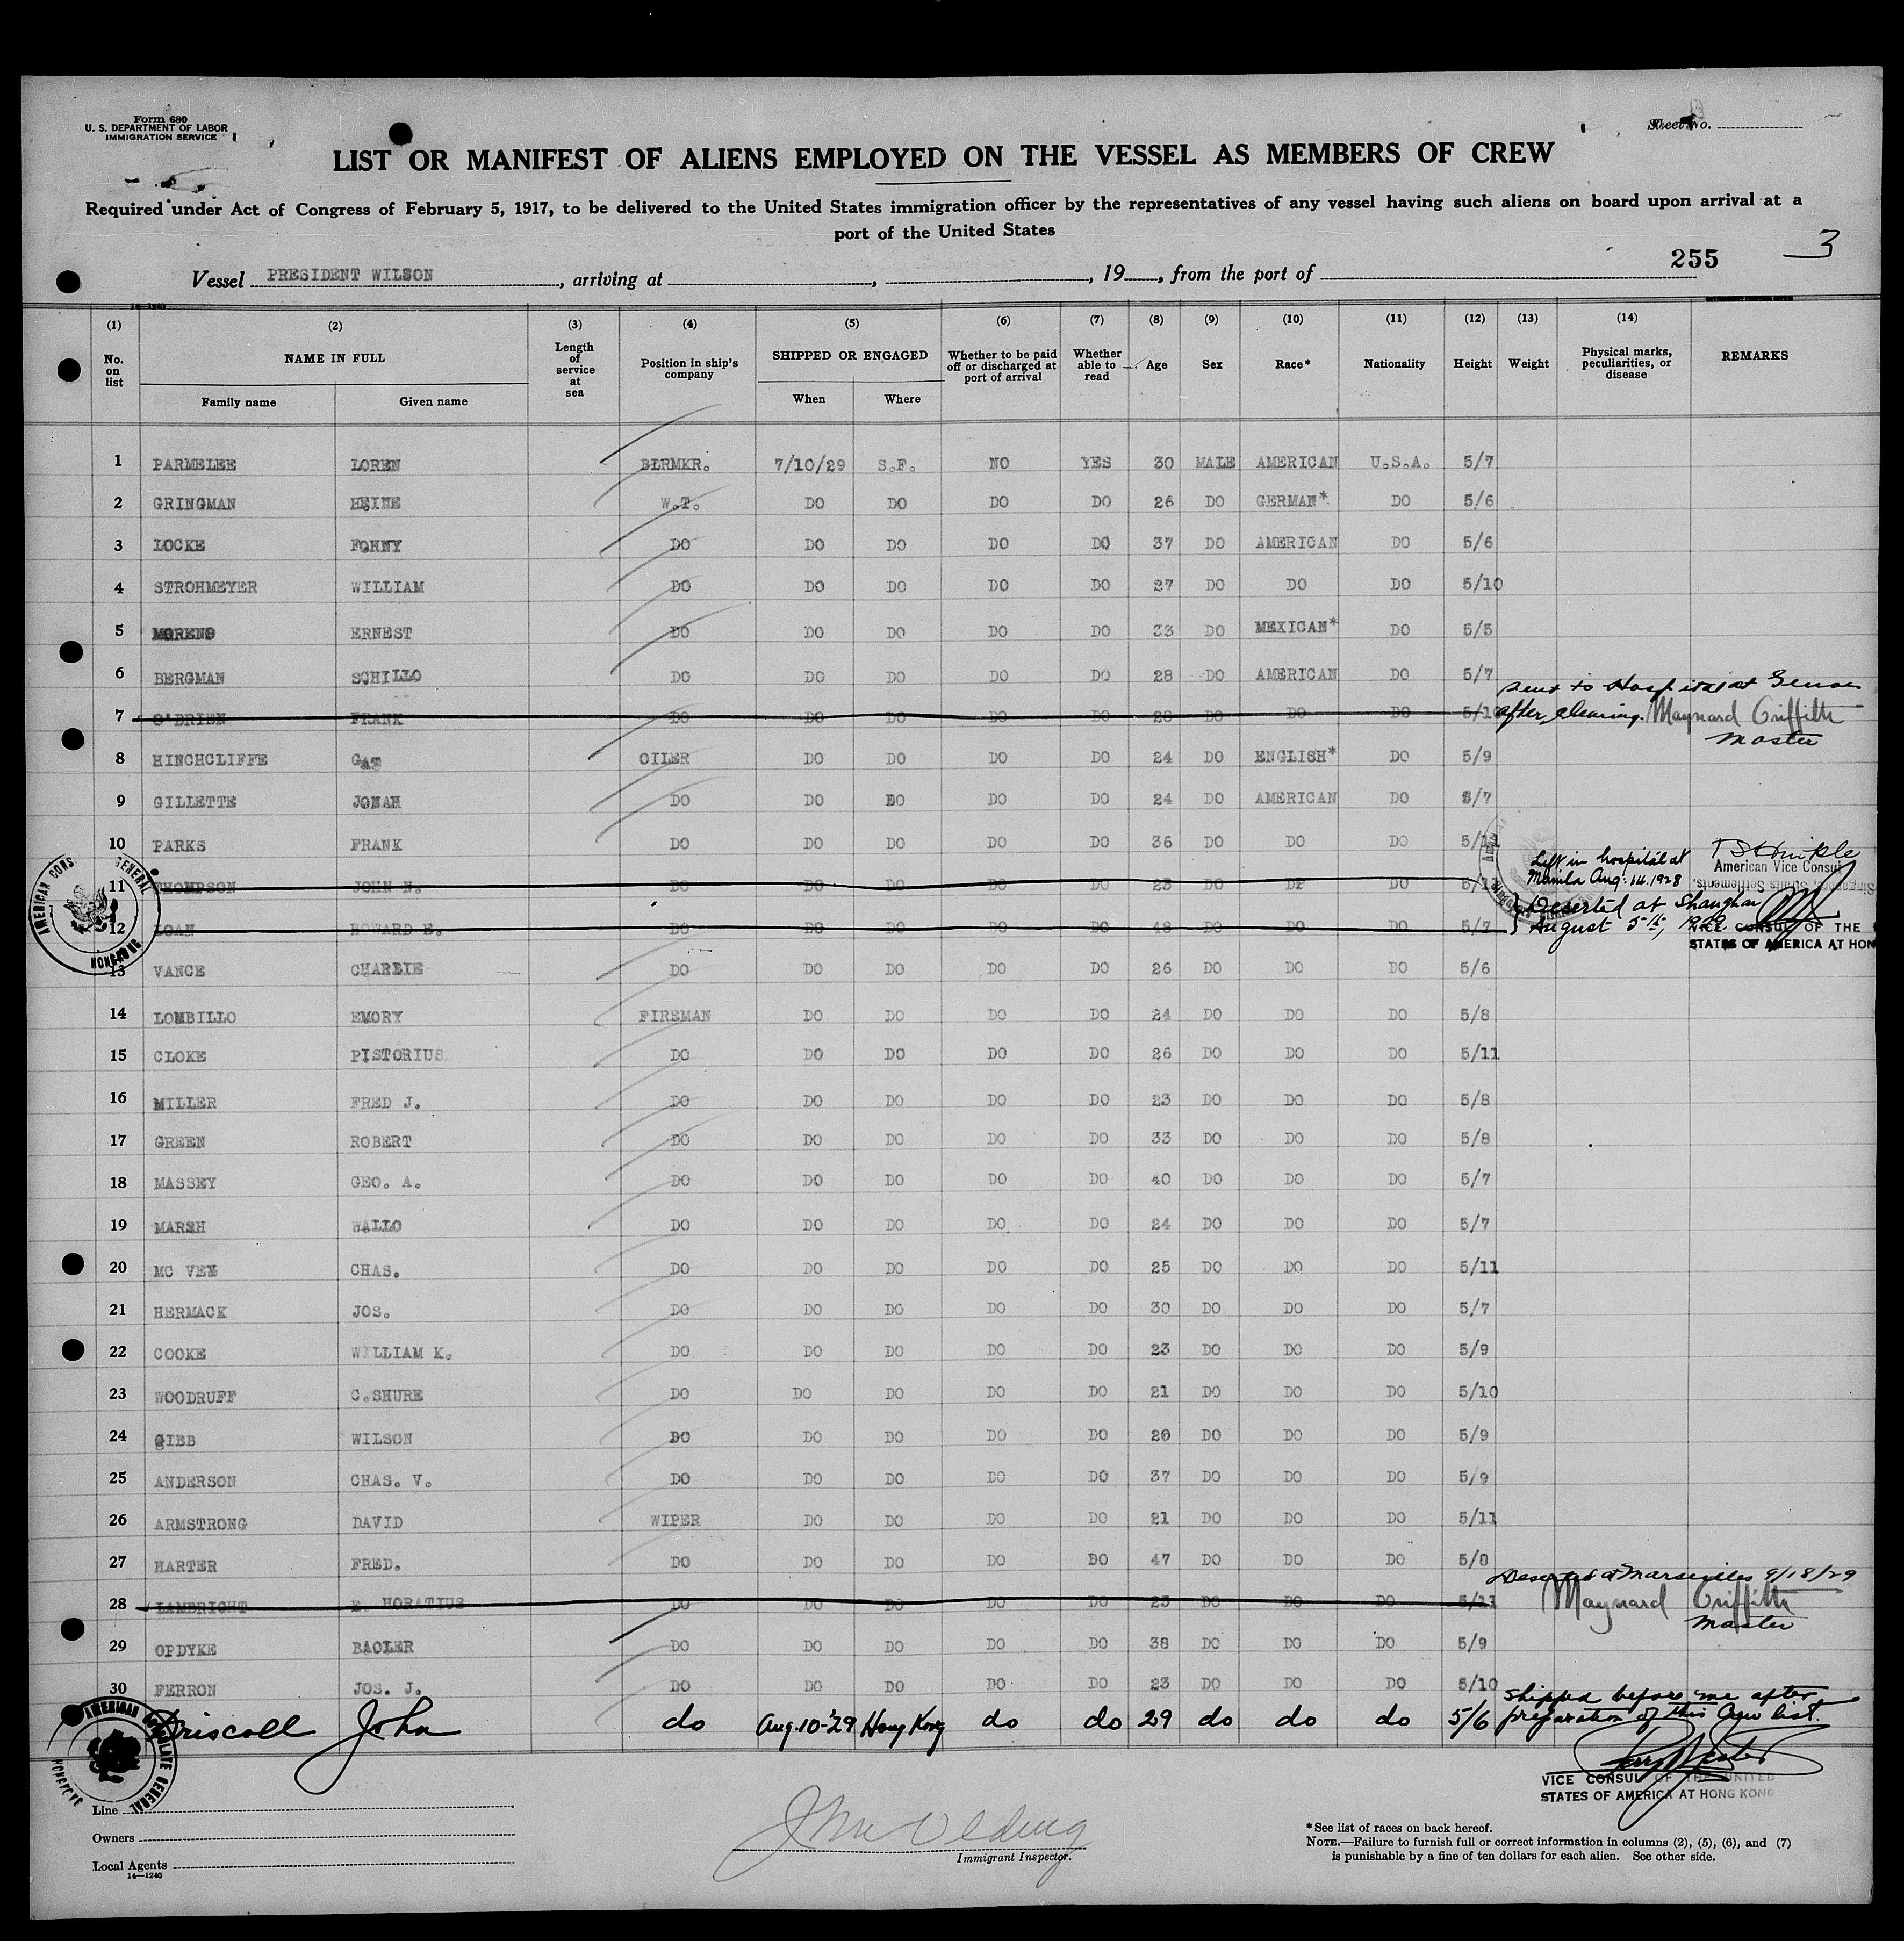 Form 680
U. S. DEPARTMENT OF LABOR
IMMIGRATION SERVICE
Sheet No.
LIST OR MANIFEST OF ALIENS EMPLOYED ON THE VESSEL AS MEMBERS OF CREW
Required under Act of Congress of February 5, 1917, to be delivered to the United States immigration officer by the representatives of any vessel having such aliens on board upon arrival at a
port of the United States
255 3
Vessel PRESIDENT WILSON, arriving at , , 19 , from the port of
(1) (2) (3) (4) (5) (6) (7) (8) (9) (10) (11) (12) (13) (14)
No. on list NAME IN FULL Length of service at sea Position in ship's company SHIPPED OR ENGAGED Whether to be paid off or discharged at port of arrival Whether able to read Age Sex Race* Nationality Height Weight Physical marks, peculiarities, or disease REMARKS
Family name Given name When Where
1 PARMELEE LOREN BLRMKR. 7/10/29 S.F. NO YES 30 MALE AMERICAN U.S.A. 5/7
2 GRINGMAN HEINE W.T. DO DO DO DO 26 DO GERMAN* DO 5/6
3 LOCKE FOHNY DO DO DO DO DO 37 DO AMERICAN DO 5/6
4 STROHMEYER WILLIAM DO DO DO DO DO 27 DO DO DO 5/10
5 MORENO ERNEST DO DO DO DO DO 33 DO MEXICAN* DO 5/5
6 BERGMAN SCHILLO DO DO DO DO DO 28 DO AMERICAN DO 5/7
7 O'BRIEN FRANK DO DO DO DO DO 28 DO DO DO sent to Hospital at Genoa
after clearing. Maynard Griffith
master
8 HINCHCLIFFE OILER DO DO DO DO 24 DO ENGLISH* DO 5/9
9 GILLETTE JONAH DO DO DO DO DO 24 DO AMERICAN DO 5/7
10 PARKS FRANK DO DO DO DO DO 36 DO DO DO 5/11
Left in hospital at
Manila Aug. 14. 1928
American Vice Consul
11 THOMPSON JOHN N. DO DO DO DO DO 23 DO DO DO
12 LOAN HOWARD E. DO DO DO DO DO 48 DO DO DO 5/7 Deserted at Shanghai
August 5th, 1929
VICE CONSUL OF THE
STATES OF AMERICA AT HON
AMERICAN CONS GENERAL HONGKONG
13 VANCE CHARLIE DO DO DO DO DO 26 DO DO DO 5/6
14 LOMBILLO EMORY FIREMAN DO DO DO DO 24 DO DO DO 5/8
15 CLOKE PISTORIUS DO DO DO DO DO 26 DO DO DO 5/11
16 MILLER FRED J. DO DO DO DO DO 23 DO DO DO 5/8
17 GREEN ROBERT DO DO DO DO DO 33 DO DO DO 5/8
18 MASSEY GEO. A. DO DO DO DO DO 40 DO DO DO 5/7
19 MARSH WALLO DO DO DO DO DO 24 DO DO DO 5/7
20 MC VEY CHAS. DO DO DO DO DO 25 DO DO DO 5/11
21 HERMACK JOS. DO DO DO DO DO 30 DO DO DO 5/7
22 COOKE WILLIAM K. DO DO DO DO DO 23 DO DO DO 5/9
23 WOODRUFF C.SHURE DO DO DO DO DO 21 DO DO DO 5/10
24 GIBB WILSON DO DO DO DO DO 20 DO DO DO 5/9
25 ANDERSON CHAS. V. DO DO DO DO DO 37 DO DO DO 5/9
26 ARMSTRONG DAVID WIPER DO DO DO DO 21 DO DO DO 5/11
27 HARTER FRED. DO DO DO DO DO 47 DO DO DO 5/8
Deserted at Marseilles 9/18/29
28 LAMBRIGHT E. HORATIUS DO DO DO DO DO 23 DO DO DO 5/11 Maynard Griffith
master
29 OPDYKE BAOLER DO DO DO DO DO 38 DO DO DO 5/9
30 FERRON JOS. J. DO DO DO DO DO 23 DO DO DO 5/10
Driscoll John do Aug. 10-'29 Hong Kong do do 29 do do do 5/6 shipped before me after
preparation of this Crew list.
VICE CONSUL OF THE UNITED
STATES OF AMERICA AT HONG KONG
AMERICAN CONSULATE GENERAL HONGKONG
Line
Owners
Local Agents
14—1240
Immigrant Inspector.
*See list of races on back hereof.
NOTE.—Failure to furnish full or correct information in columns (2), (5), (6), and (7)
is punishable by a fine of ten dollars for each alien. See other side.